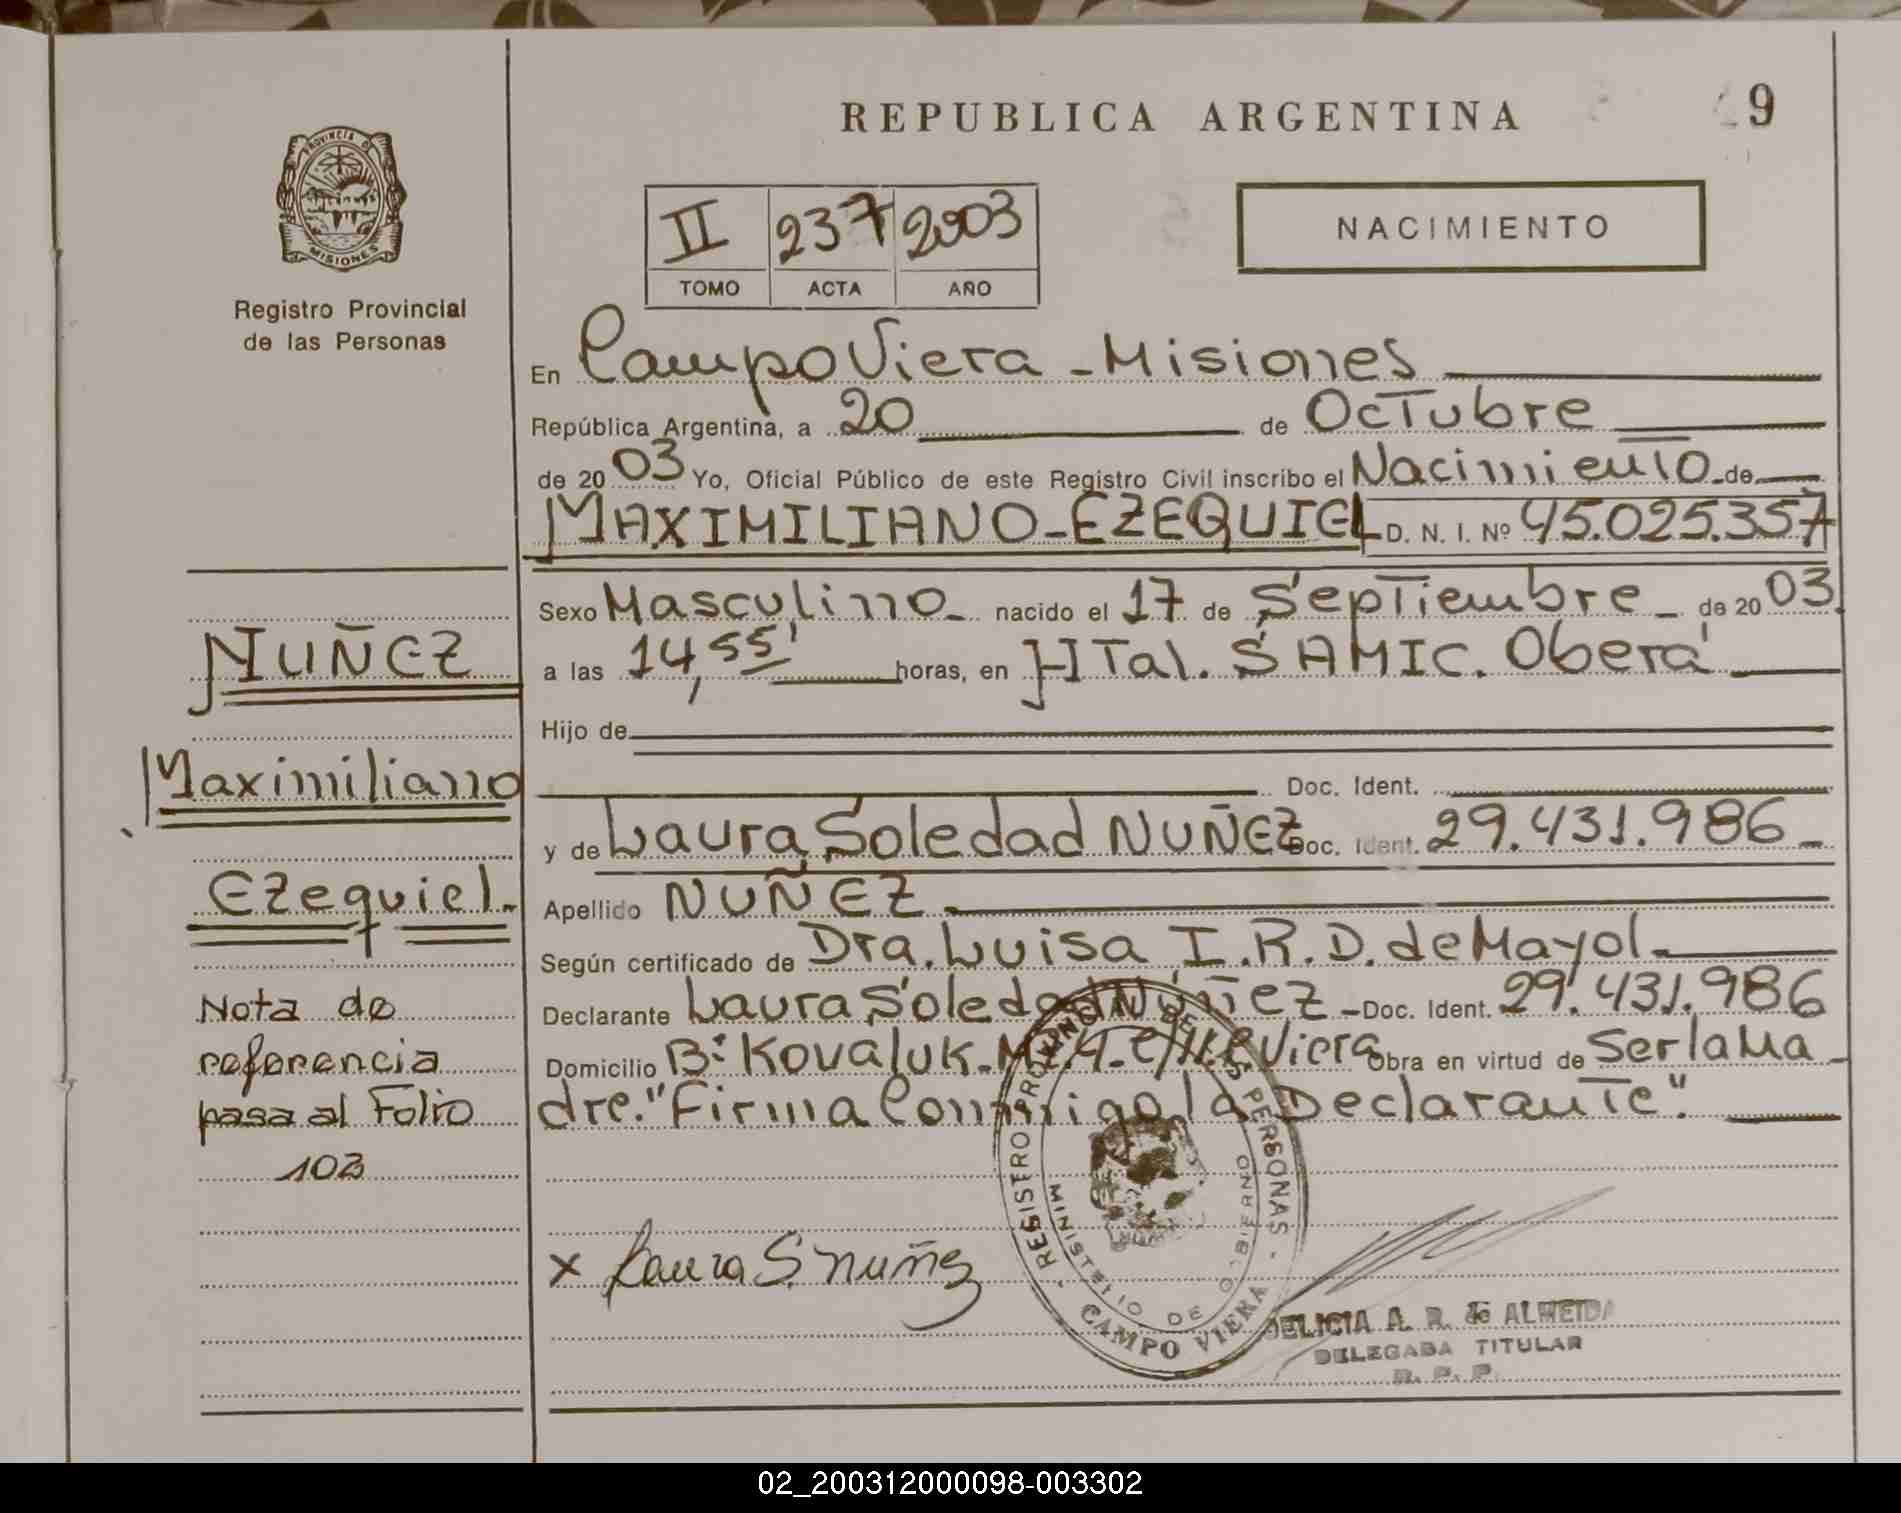 REPUBLICA ARGENTINA
9
PROVINCIA DE
MISIONES
Registro Provincial
de las Personas
II 237 2003
TOMO ACTA AÑO
NACIMIENTO
En Campo Viera - Misiones
República Argentina, a 20 de Octubre
de 2003 Yo, Oficial Público de este Registro Civil inscribo el Nacimiento de
MAXIMILIANO - EZEQUIEL D. N. I. Nº 45.025.357
Sexo Masculino - nacido el 17 de Septiembre - de 2003.
a las 14,55' horas, en HTal. SAMIC. Oberá
Hijo de
Doc. Ident.
y de Laura Soledad NUÑEZ Doc. Ident. 29.431.986 -
Apellido NUÑEZ
Según certificado de Dra. Luisa I.R.D. de Mayol.
Declarante Laura Soledad Nuñez - Doc. Ident. 29.431.986
Domicilio Bº Kovaluk. Viera Obra en virtud de Ser la Ma
dre. "Firma Conmigo la Declarante".
NUÑEZ
Maximiliano
Ezequiel -
Nota de
referencia
pasa al Folio
103
x Laura S. Nuñez
REGISTRO PROVINCIAL DE LAS PERSONAS - CAMPO VIERA -
MINISTERIO DE GOBIERNO
DELICIA A. R. de ALMEIDA
DELEGADA TITULAR
R. P. P.
02_200312000098-003302